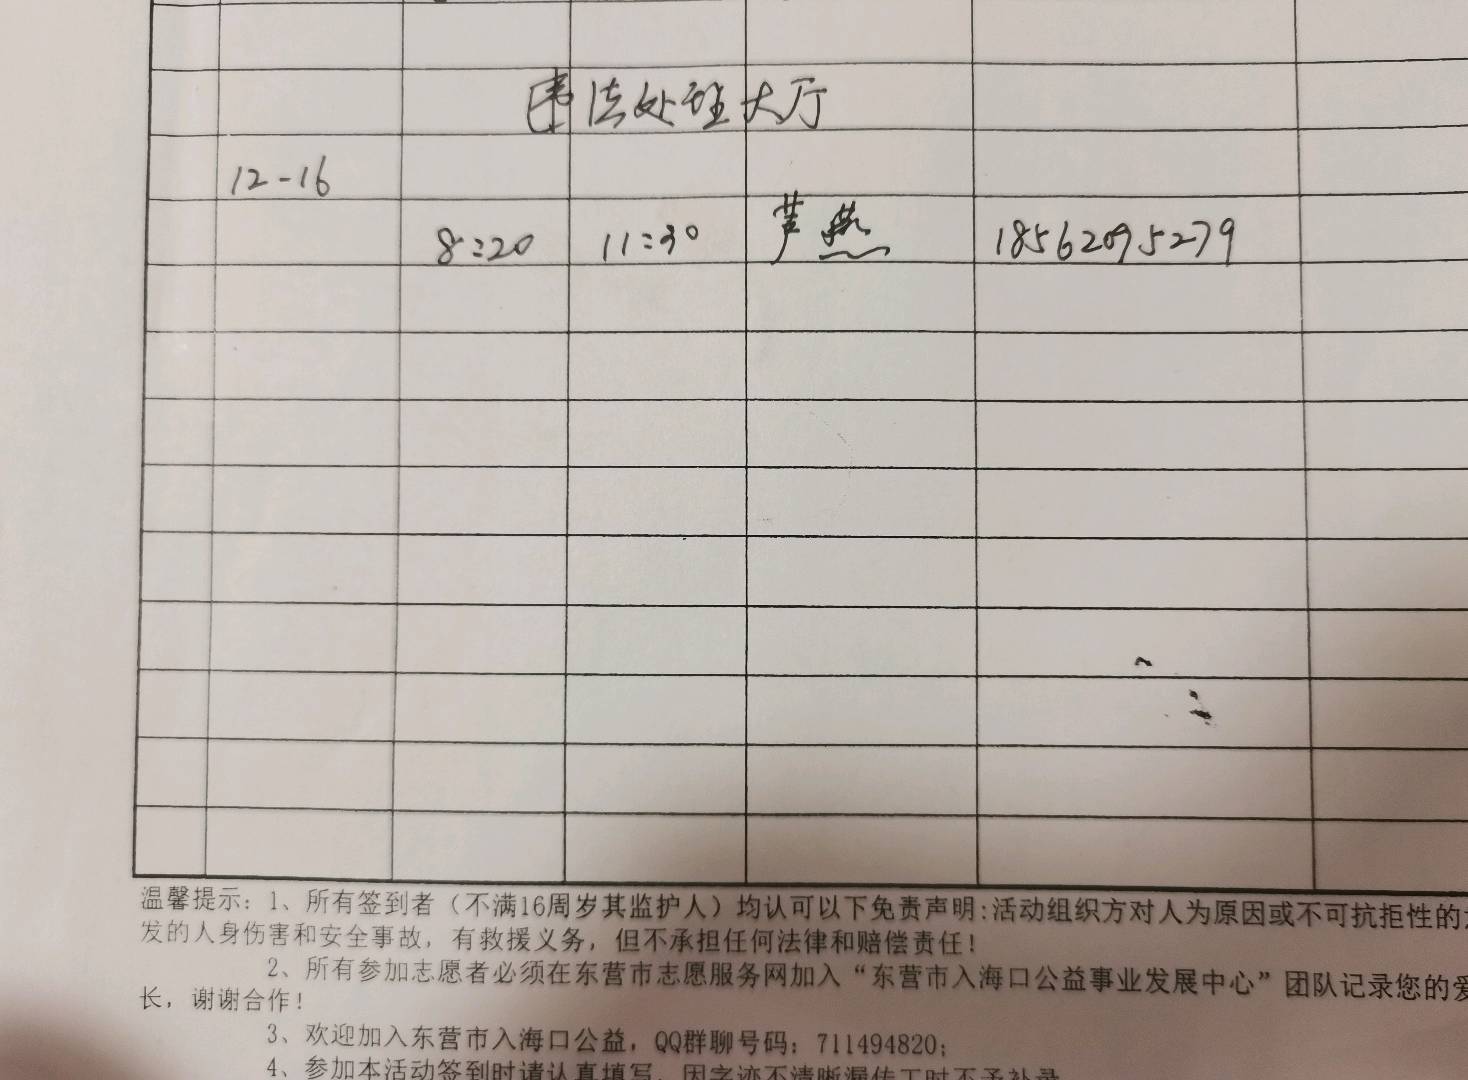 违法处理大厅
12-16
8:20 11:30 芦燕 18562095279
温馨提示: 1、所有签到者（不满16周岁其监护人）均认可以下免责声明:活动组织方对人为原因或不可抗拒性的
发的人身伤害和安全事故，有救援义务，但不承担任何法律和赔偿责任!
2、所有参加志愿者必须在东营市志愿服务网加入“东营市入海口公益事业发展中心”团队记录您的爱
长，谢谢合作!
3、欢迎加入东营市入海口公益，QQ群聊号码: 711494820;
4、参加本活动签到时请认真填写，因字迹不清晰漏传工时不予补录